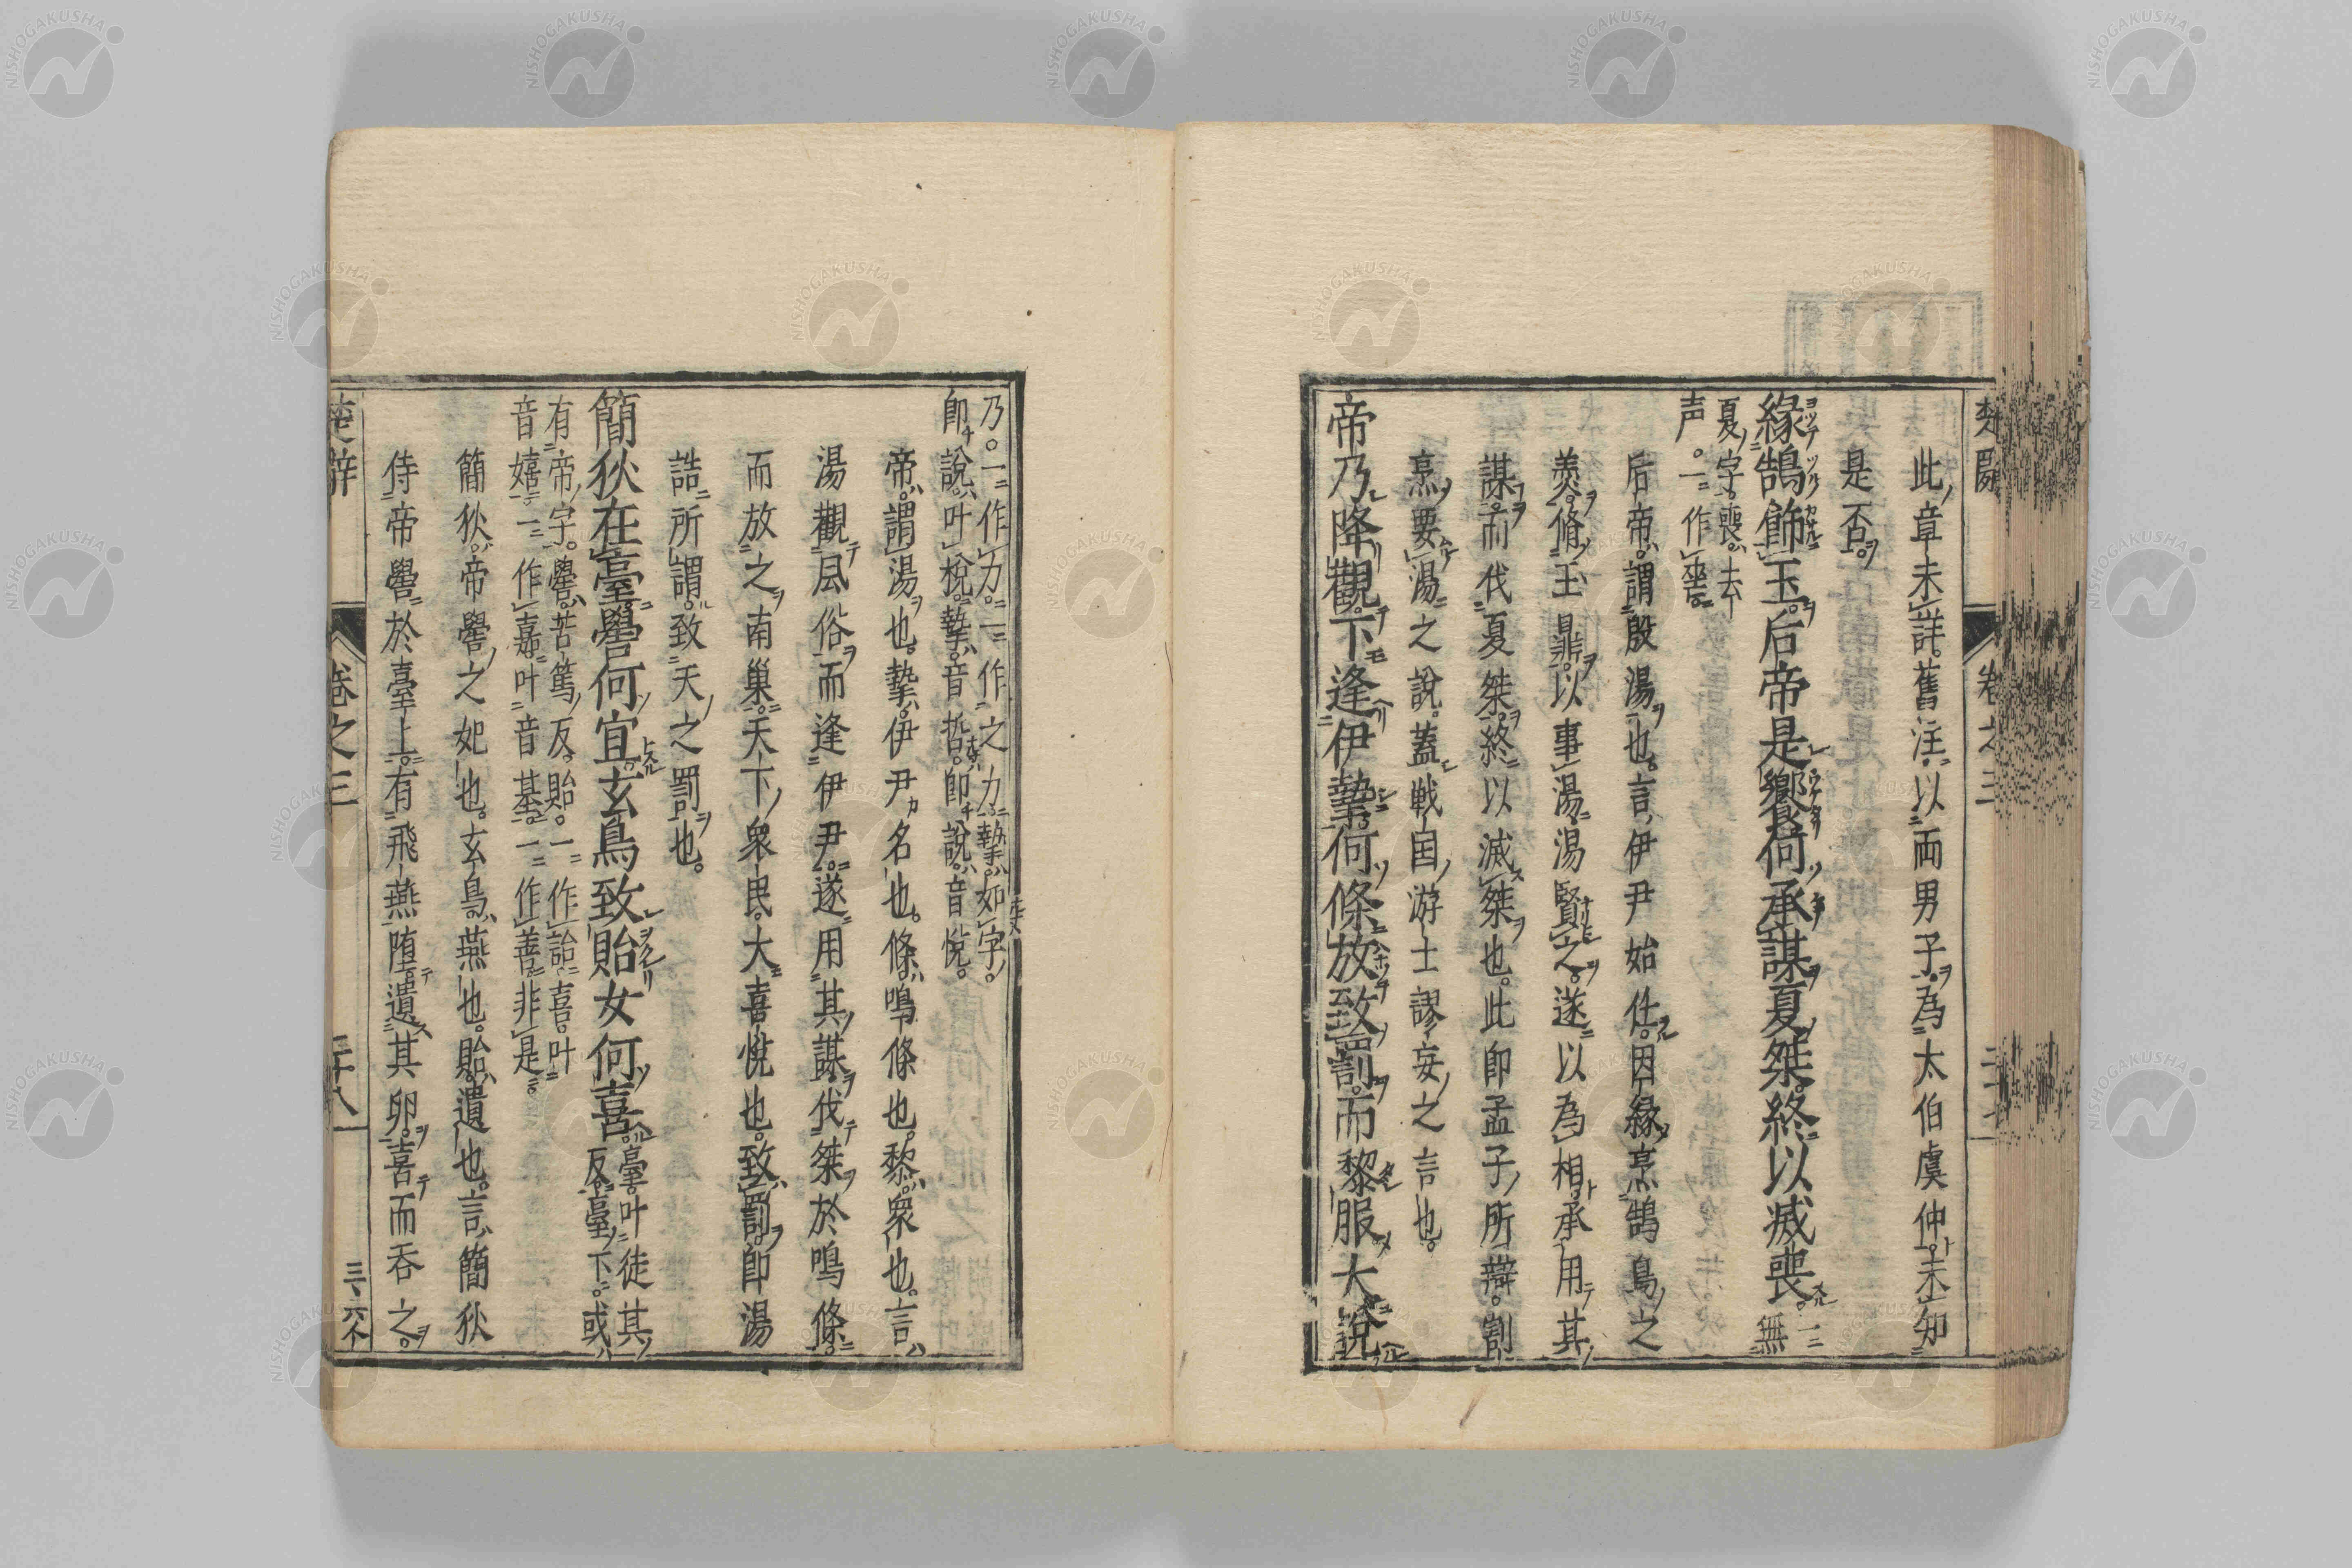 此章未詳。舊注以両男子為太伯虞仲未知
是否。
緣鵠飾玉。后帝是饗。何承謀夏桀。終以滅喪。一無
夏字。喪。去
声。一作喪。
后帝。謂殷湯也。言伊尹始仕。因緣烹鵠鳥之
羹。脩玉鼎。以事湯。湯賢之。遂以為相。承用其
謀。而伐夏桀。終以滅桀也。此即孟子所辯。割
烹要湯之說。蓋戦国游士謬妄之言也。
帝乃降觀。下逢伊摯。何條放致罰。而黎服大說。
乃。一作力。一作之力。摯。如字。
即說。叶梲。摯。音哲。即說。音悅。
帝。謂湯也。摯。伊尹名也。條。鳴條也。黎。衆也。言
湯觀風俗。而逢伊尹。遂用其謀。伐桀於鳴條。
而放之南巢。天下衆民。大喜悅也。致罰。即湯
誥所謂。致天之罰也。
簡狄在臺嚳何宜。玄鳥致貽女何喜。臺。叶徒其
反。臺下。或
有帝字。嚳。苦篤反。貽。一作詒。喜。叶
音嬉。一作嘉。叶音基。一作善。非是。
簡狄。帝嚳之妃也。玄鳥。燕也。貽。遺也。言簡狄
侍帝嚳於臺上。有飛燕墮遺其卵。喜而吞之。
楚辞
卷之三
三ノ六本
卷之三